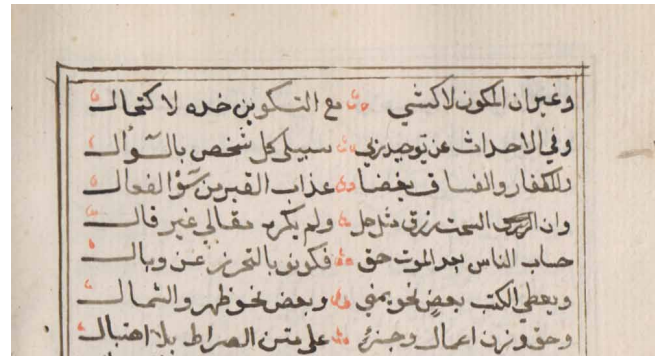 وغيران المكون لا كشئي مع التكوين خده لاكتحال
وفي الاحداث عن توحيد ربي سيبلى كل شخص بالسؤال
وللكفار والفساق بغضا عذاب القبر من سؤ الفعال
وان السحت رزق مثل حل ولم يكره مقالي غير قال
حساب الناس بعد الموت حق فكونوا بالتحرز عن وبال
ويعطي الكتب بعض نحو يمني وبعض نحو ظهر والشمال
وحق وزن اعمال وجري على متن الصراط بلا اهتبال